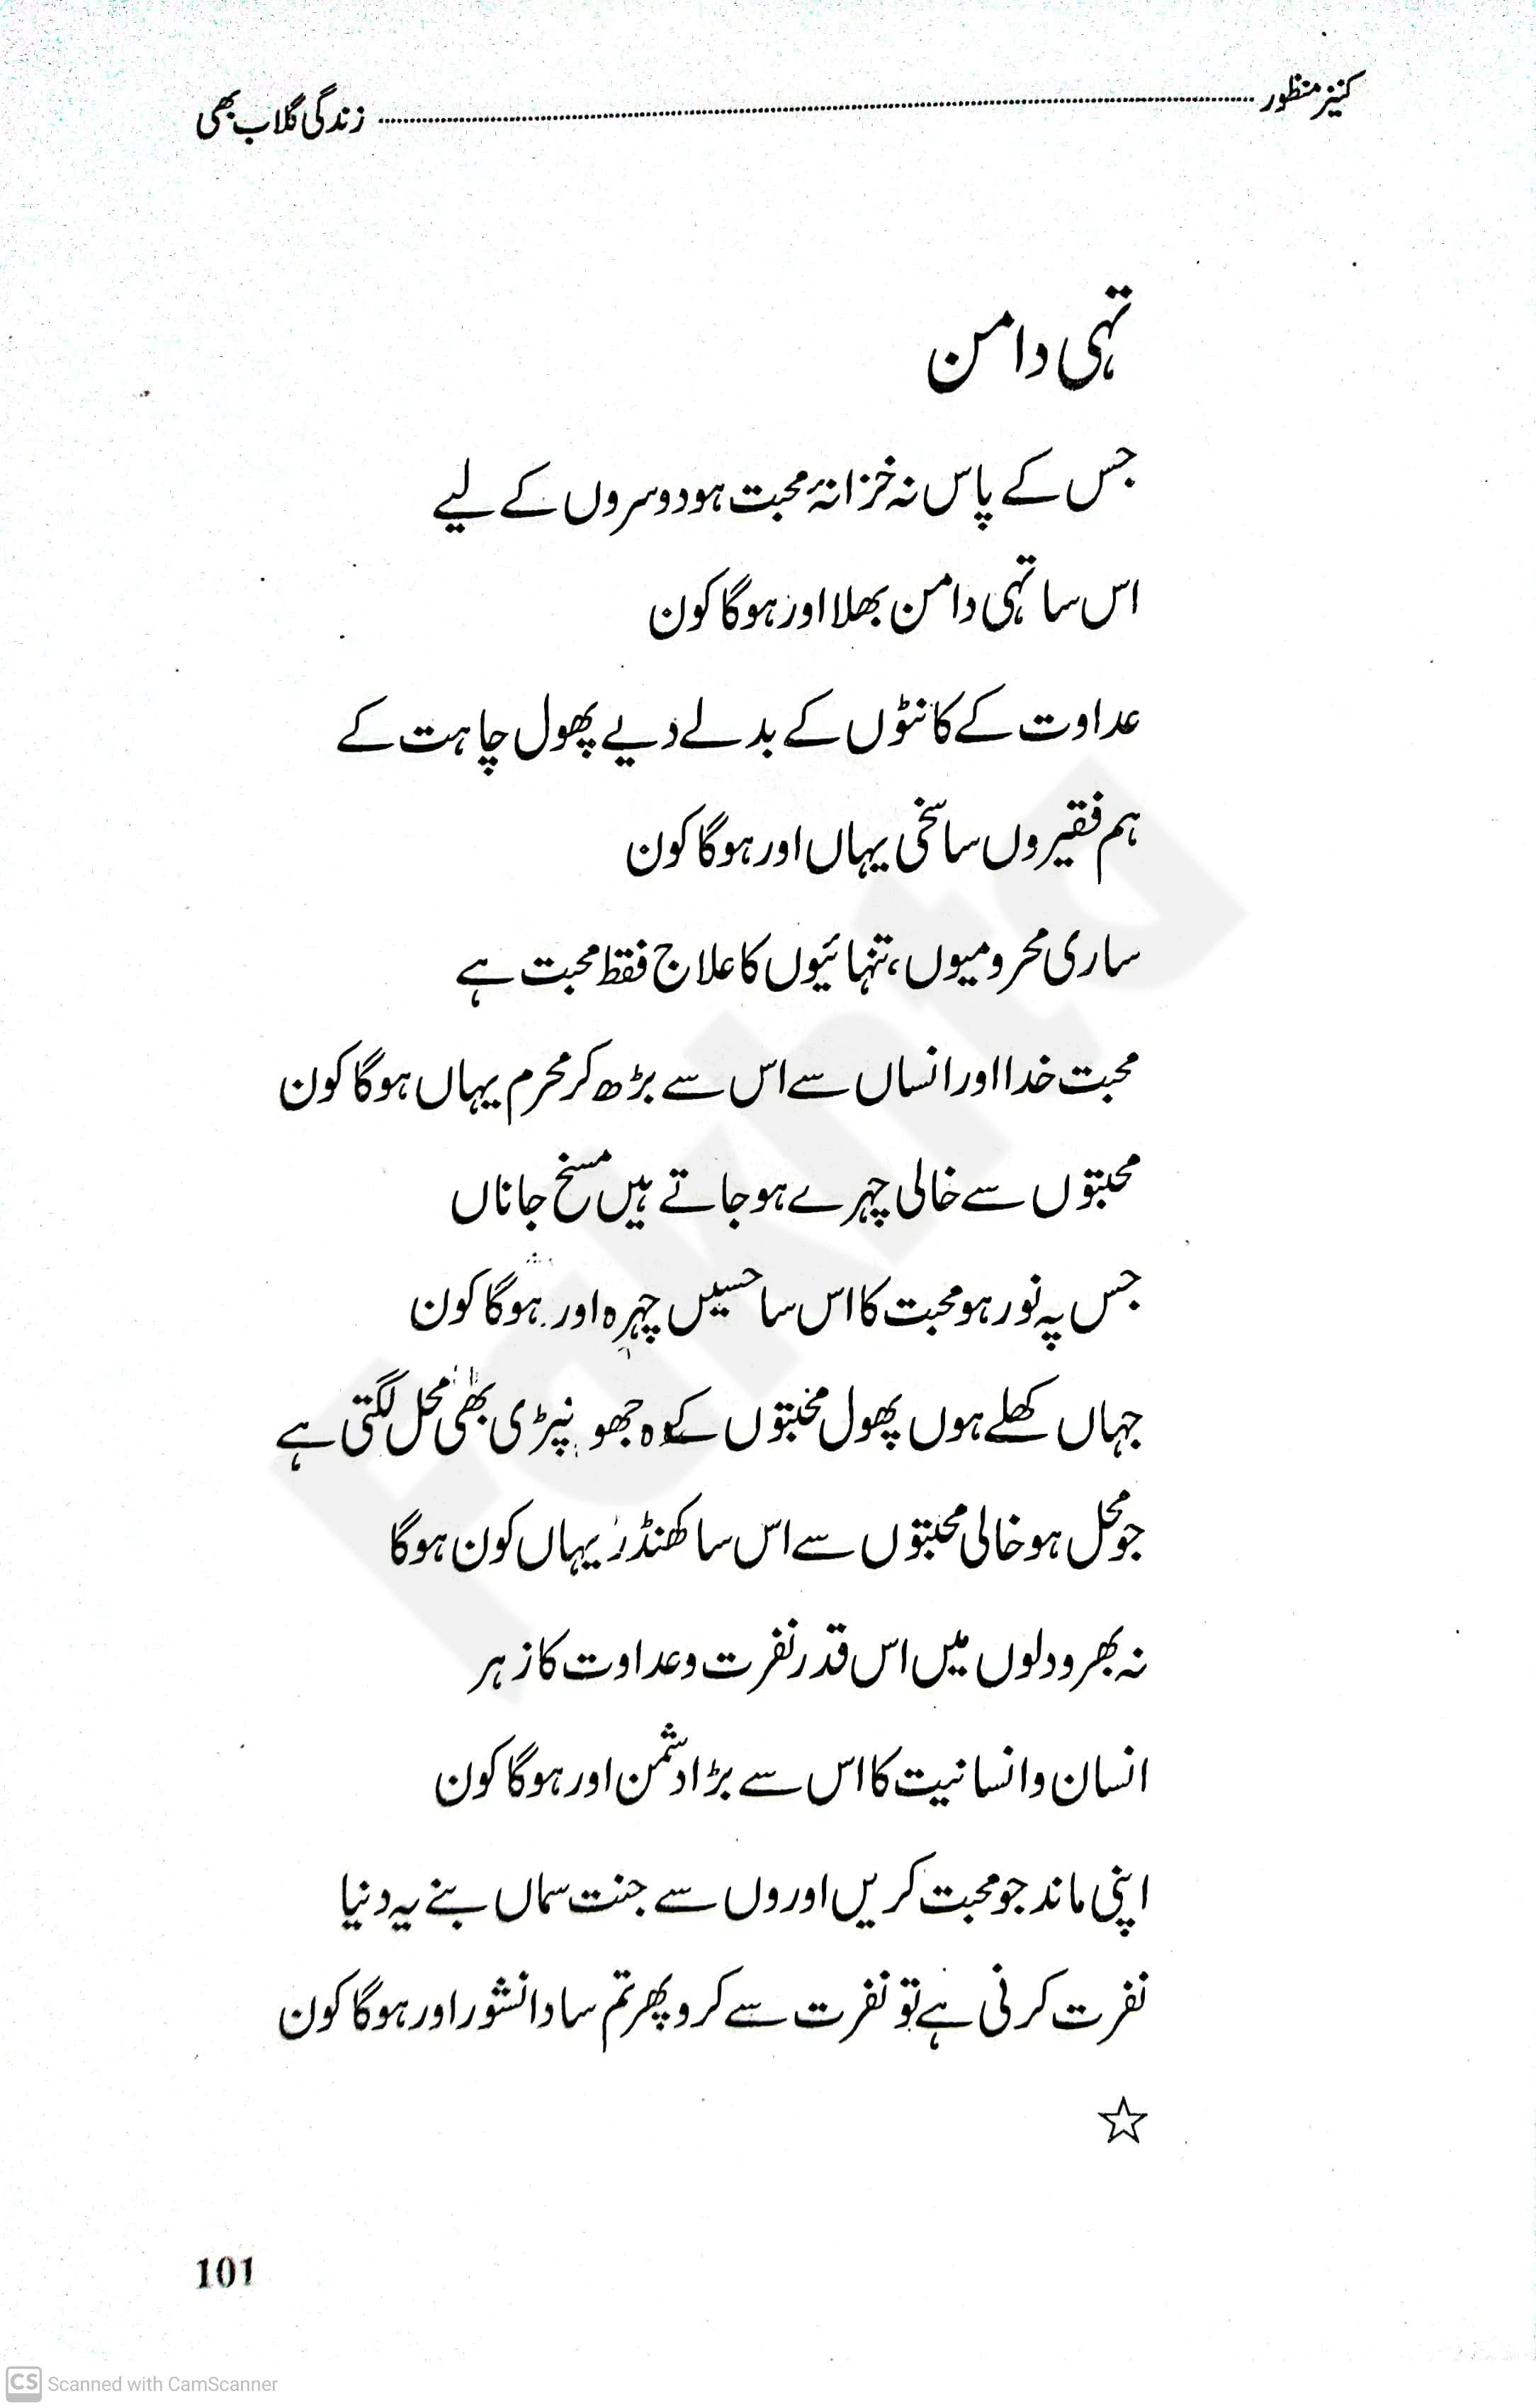 کنیز منظور ........................ زندگی گلاب بھی
تہی دامن
جس کے پاس نہ خزانۂ محبت ہو دوسروں کے لیے
اس سا تہی دامن بھلا اور ہوگا کون
عداوت کے کانٹوں کے بدلے دیے پھول چاہت کے
ہم فقیروں سا سخی یہاں اور ہوگا کون
ساری محرومیوں، تنہائیوں کا علاج فقط محبت ہے
محبت خدا اور انساں سے اس سے بڑھ کر محرم یہاں ہوگا کون
محبتوں سے خالی چہرے ہو جاتے ہیں مسخ جاناں
جس پہ نور ہو محبت کا اس سا حسیں چہرہ اور ہوگا کون
جہاں کھلے ہوں پھول محبتوں کے وہ جھونپڑی بھی محل لگتی ہے
جو محل ہو خالی محبتوں سے اس سا کھنڈر یہاں کون ہوگا
نہ بھرو دلوں میں اس قدر نفرت و عداوت کا زہر
انسان و انسانیت کا اس سے بڑا دشمن اور ہوگا کون
اپنی ماند جو محبت کریں اوروں سے جنت سماں بنے یہ دنیا
نفرت کرنی ہے تو نفرت سے کرو پھر تم سا دانشور اور ہوگا کون
☆
101
Fakhta
CS Scanned with CamScanner